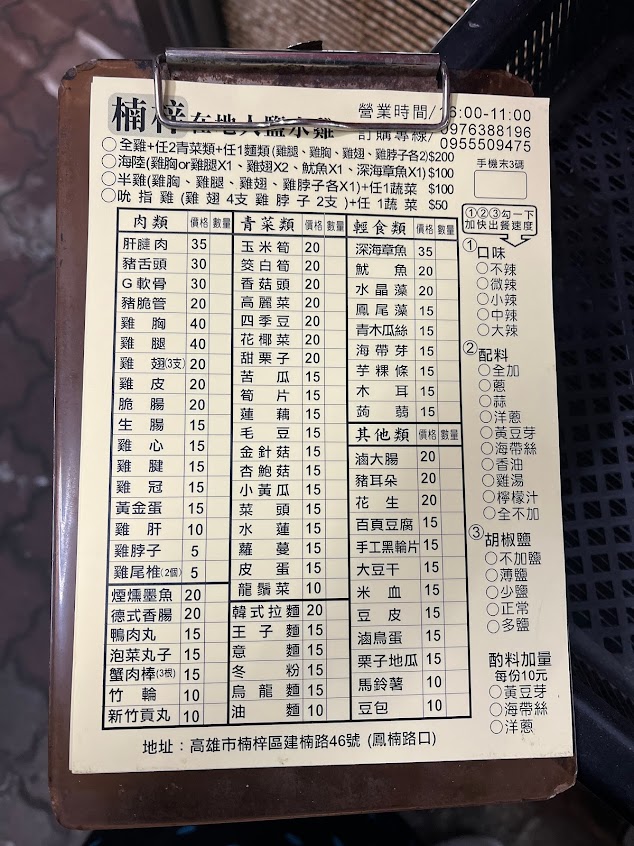 楠梓在地人鹽水雞
營業時間/16:00-11:00
訂購專線/0976388196
0955509475
○全雞+任2青菜類+任1麵類(雞腿、雞胸、雞翅、雞脖子各2)$200
○海陸(雞胸or雞腿X1、雞翅X2、魷魚X1、深海章魚X1)$100
○半雞(雞胸、雞腿、雞翅、雞脖子各X1)+任1蔬菜 $100
○吮指雞(雞翅4支雞脖子2支)+任1蔬菜 $50
手機末3碼
①②③勾一下
加快出餐速度
肉類 價格 數量
肝腱肉 35
豬舌頭 30
G軟骨 30
豬脆管 20
雞胸 40
雞腿 40
雞翅(3支) 20
雞皮 20
脆腸 20
生腸 15
雞心 15
雞腱 15
雞冠 15
黃金蛋 15
雞肝 10
雞脖子 5
雞尾椎(2個) 5
煙燻墨魚 20
德式香腸 20
鴨肉丸 15
泡菜丸子 15
蟹肉棒(3根) 15
竹輪 10
新竹貢丸 10
青菜類 價格 數量
玉米筍 20
筊白筍 20
香菇頭 20
高麗菜 20
四季豆 20
花椰菜 20
甜栗子 20
苦瓜 15
筍片 15
蓮藕 15
毛豆 15
金針菇 15
杏鮑菇 15
小黃瓜 15
菜頭 15
水蓮 15
蘿蔓 15
皮蛋 15
龍鬚菜 10
韓式拉麵 20
王子麵 15
意麵 15
冬粉 15
烏龍麵 10
油麵 10
輕食類 價格 數量
深海章魚 35
魷魚 20
水晶藻 20
鳳尾藻 15
青木瓜絲 15
海帶芽 15
芋粿條 15
木耳 15
蒟蒻 15
其他類 價格 數量
滷大腸 20
豬耳朵 20
花生 20
百頁豆腐 15
手工黑輪片 15
大豆干 15
米血 15
豆皮 15
滷鳥蛋 15
栗子地瓜 15
馬鈴薯 10
豆包 10
①口味
○不辣
○微辣
○小辣
○中辣
○大辣
②配料
○全加
○蔥
○蒜
○洋蔥
○黃豆芽
○海帶絲
○香油
○雞湯
○檸檬汁
○全不加
③胡椒鹽
○不加鹽
○薄鹽
○少鹽
○正常
○多鹽
酌料加量
每份10元
○黃豆芽
○海帶絲
○洋蔥
地址：高雄市楠梓區建楠路46號 (鳳楠路口)